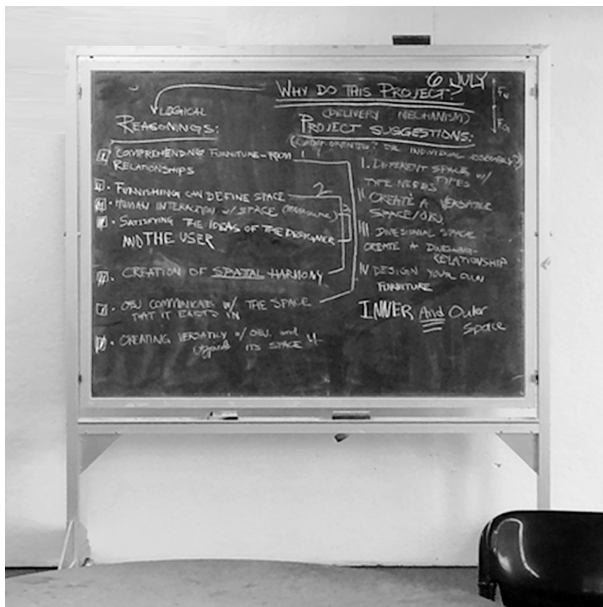 6 JULY
WHY DO THIS PROJECT?
LOGICAL
REASONINGS:
COMPREHENDING FURNITURE-ROOM
RELATIONSHIPS
FURNISHING CAN DEFINE SPACE
2
HUMAN INTERACTION W/ SPACE
SATISFYING THE IDEAS OF THE DESIGNER
AND THE USER
CREATION OF SPATAL HARMONY
OBJ COMMUNICATES W/ THE SPACE
THAT IT EXISTS IN
CREATING VERSATILY W/ OBJ. and
ITS SPACE 4
(DELIVERY MECHANISM)
PROJECT SUGGESTIONS:
OR INDIVIDUAL
I. DIFFERENT SPACE W/
TYPE NEEDS TYPES
II CREATE A VERSATILE
SPACE/OBJ.
III. SPACE
CREATE A
RELATIONSHIP
IV DESIGN YOUR OWN
FURNITURE
INNER And Outer
Space